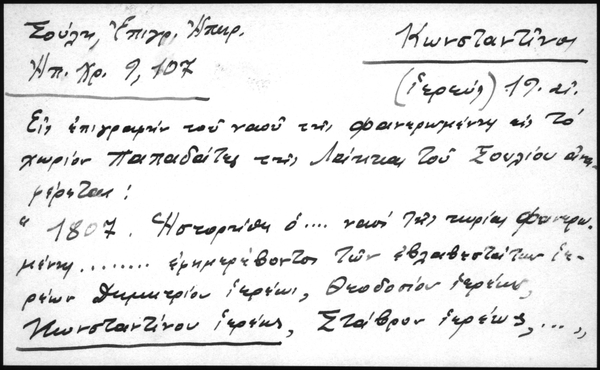 Σούλη, Ἐπιγρ. Ἠπειρ.
Ἠπ. Χρ. 9, 107
Κωνσταντῖνος
(ἱερεύς) 19. αἰ.
Εἰς ἐπιγραφήν τοῦ ναοῦ τῆς φανερωμένης εἰς τό
χωρίον Παπαδάτες τῆς Λάκκας τοῦ Σουλίου ἀνα-
φέρεται:
" 1807. Ἡστορήθη ὁ .... ναός τῆς κυρίας Φανερω-
μένης ........ ἐφημερέβοντος τῶν ἐβλαβεστάτων ἱε-
ρέων Δημητρίου ἱερέως, Θεοδοσίου ἱερέως,
Κωνσταντίνου ἱερέως, Σταύρου ἱερέως, ...,,